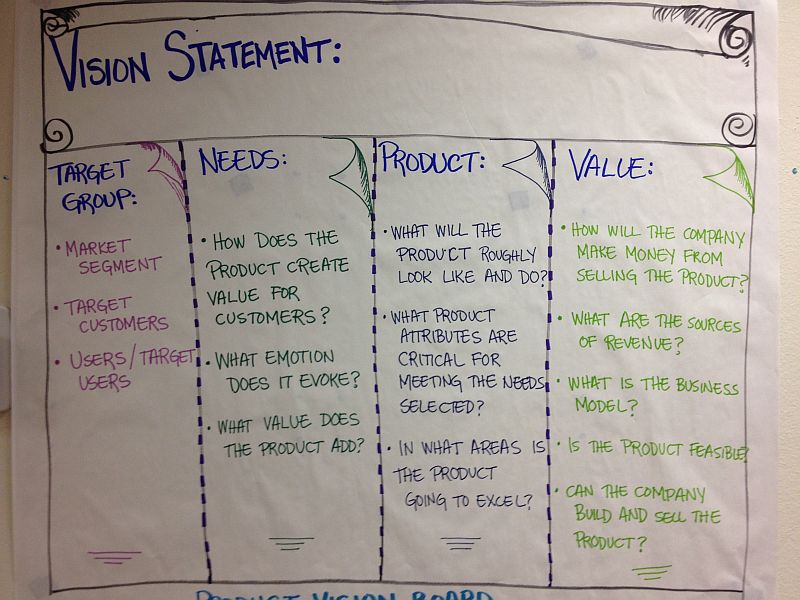 VISION STATEMENT:
TARGET
GROUP:
• MARKET
SEGMENT
• TARGET
CUSTOMERS
• USERS/TARGET
USERS
NEEDS:
• HOW DOES THE
PRODUCT CREATE
VALUE FOR
CUSTOMERS?
• WHAT EMOTION
DOES IT EVOKE?
• WHAT VALUE DOES
THE PRODUCT ADD?
PRODUCT:
• WHAT WILL THE
PRODUCT ROUGHLY
LOOK LIKE AND DO?
• WHAT PRODUCT
ATTRIBUTES ARE
CRITICAL FOR
MEETING THE NEEDS
SELECTED?
• IN WHAT AREAS IS
THE PRODUCT
GOING TO EXCEL?
VALUE:
• HOW WILL THE COMPANY
MAKE MONEY FROM
SELLING THE PRODUCT?
• WHAT ARE THE SOURCES
OF REVENUE?
• WHAT IS THE BUSINESS
MODEL?
• IS THE PRODUCT FEASIBLE?
• CAN THE COMPANY
BUILD AND SELL THE
PRODUCT?
PRODUCT VISION BOARD